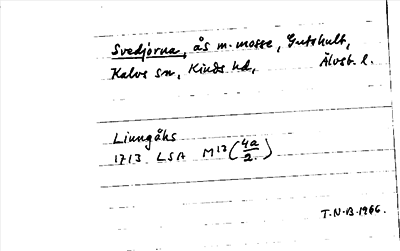 Svedjorna, ås m. mosse, Gutshult,
Kalvs sn, Kinds hd, Älvsb. l.
Ljungåhs
1713 LSA M17 (4a/2)
T.N.B. 1966.